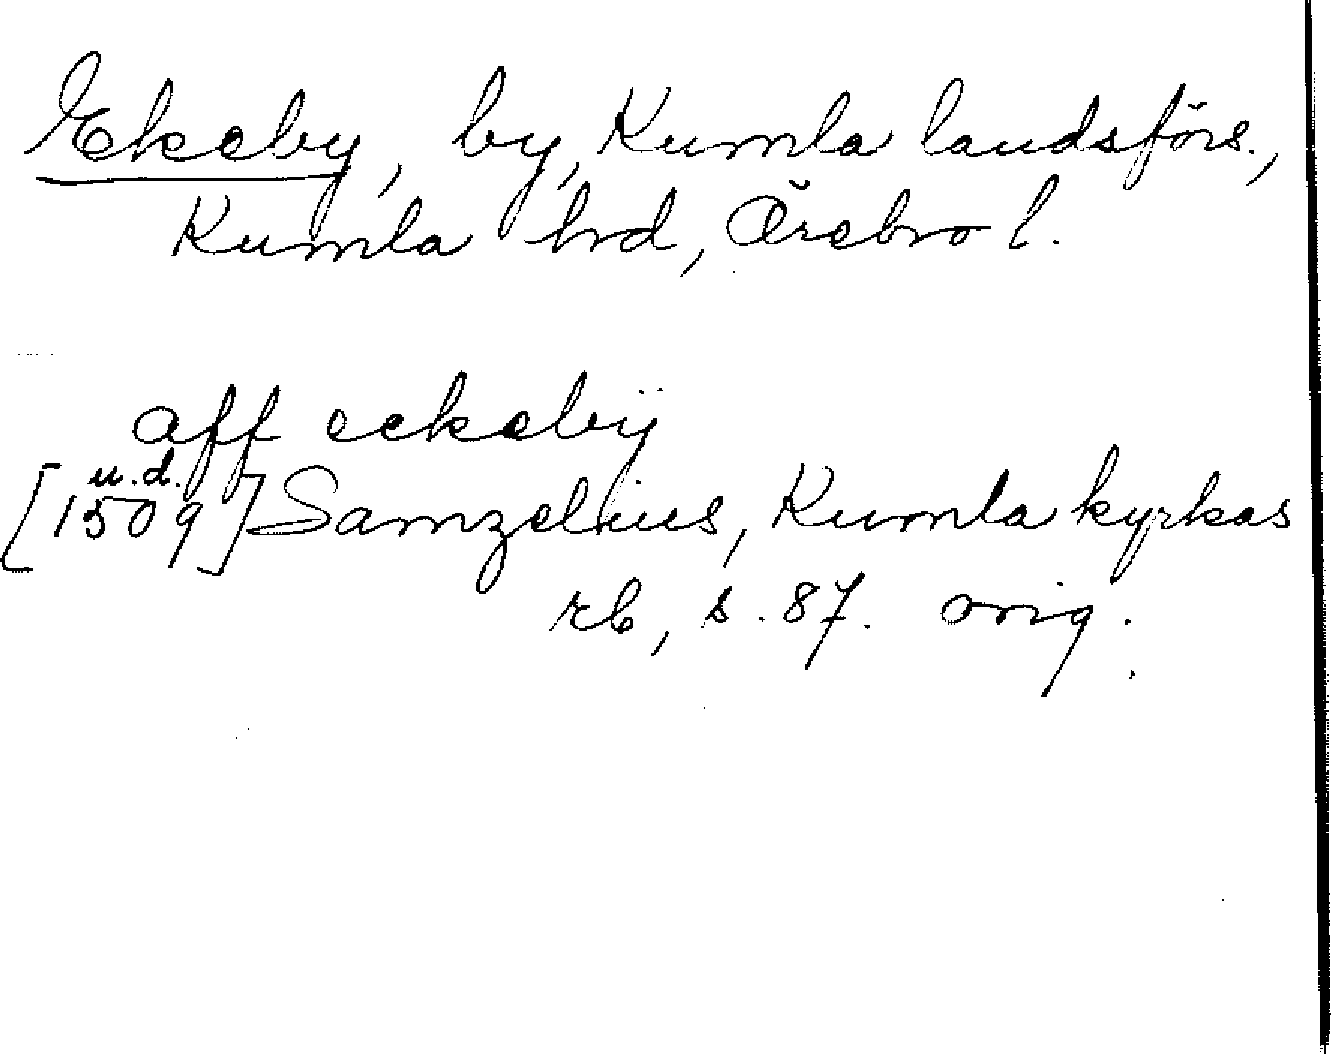 Ekeby, by, Kumla landsförs.,
Kumla hrd, Örebro l.
aff eekebÿ
u.d.
[1509] Samzelius, Kumla kyrkas
rb, s. 87. orig.